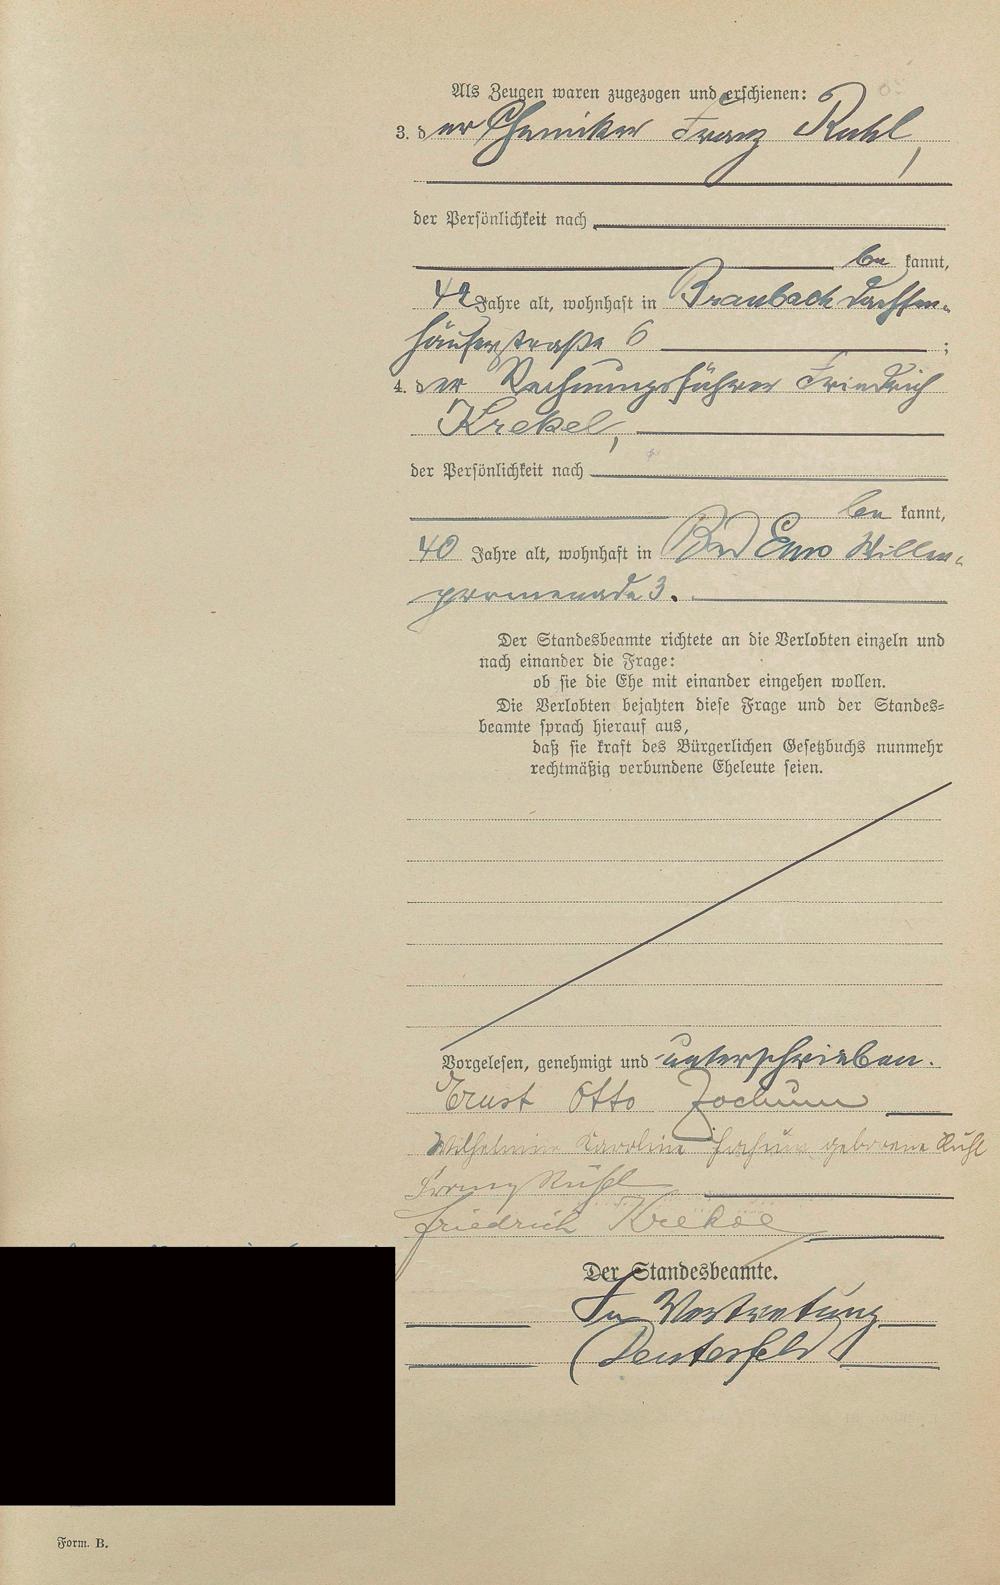 Als Zeugen waren zugezogen und erschienen:
3. der Chemiker Franz Ruhl,
der Persönlichkeit nach
be kannt,
42 Jahre alt, wohnhaft in Braubach Dachsen-
häuserstraße 6 ;
4. der Rechnungsführer Friedrich
Krekel,
der Persönlichkeit nach
be kannt,
40 Jahre alt, wohnhaft in Bad Ems Willm-
promenade 3.
Der Standesbeamte richtete an die Verlobten einzeln und
nach einander die Frage:
ob sie die Ehe mit einander eingehen wollen.
Die Verlobten bejahten diese Frage und der Standes-
beamte sprach hierauf aus,
daß sie kraft des Bürgerlichen Gesetzbuchs nunmehr
rechtmäßig verbundene Eheleute seien.
Vorgelesen, genehmigt und unterschrieben.
Ernst Otto Jochum
Wilhelmine Karoline Jochum geborene Ruhl
Franz Ruhl
Friedrich Krekel
Der Standesbeamte.
In Vertretung
Deusterfeld
Form. B.